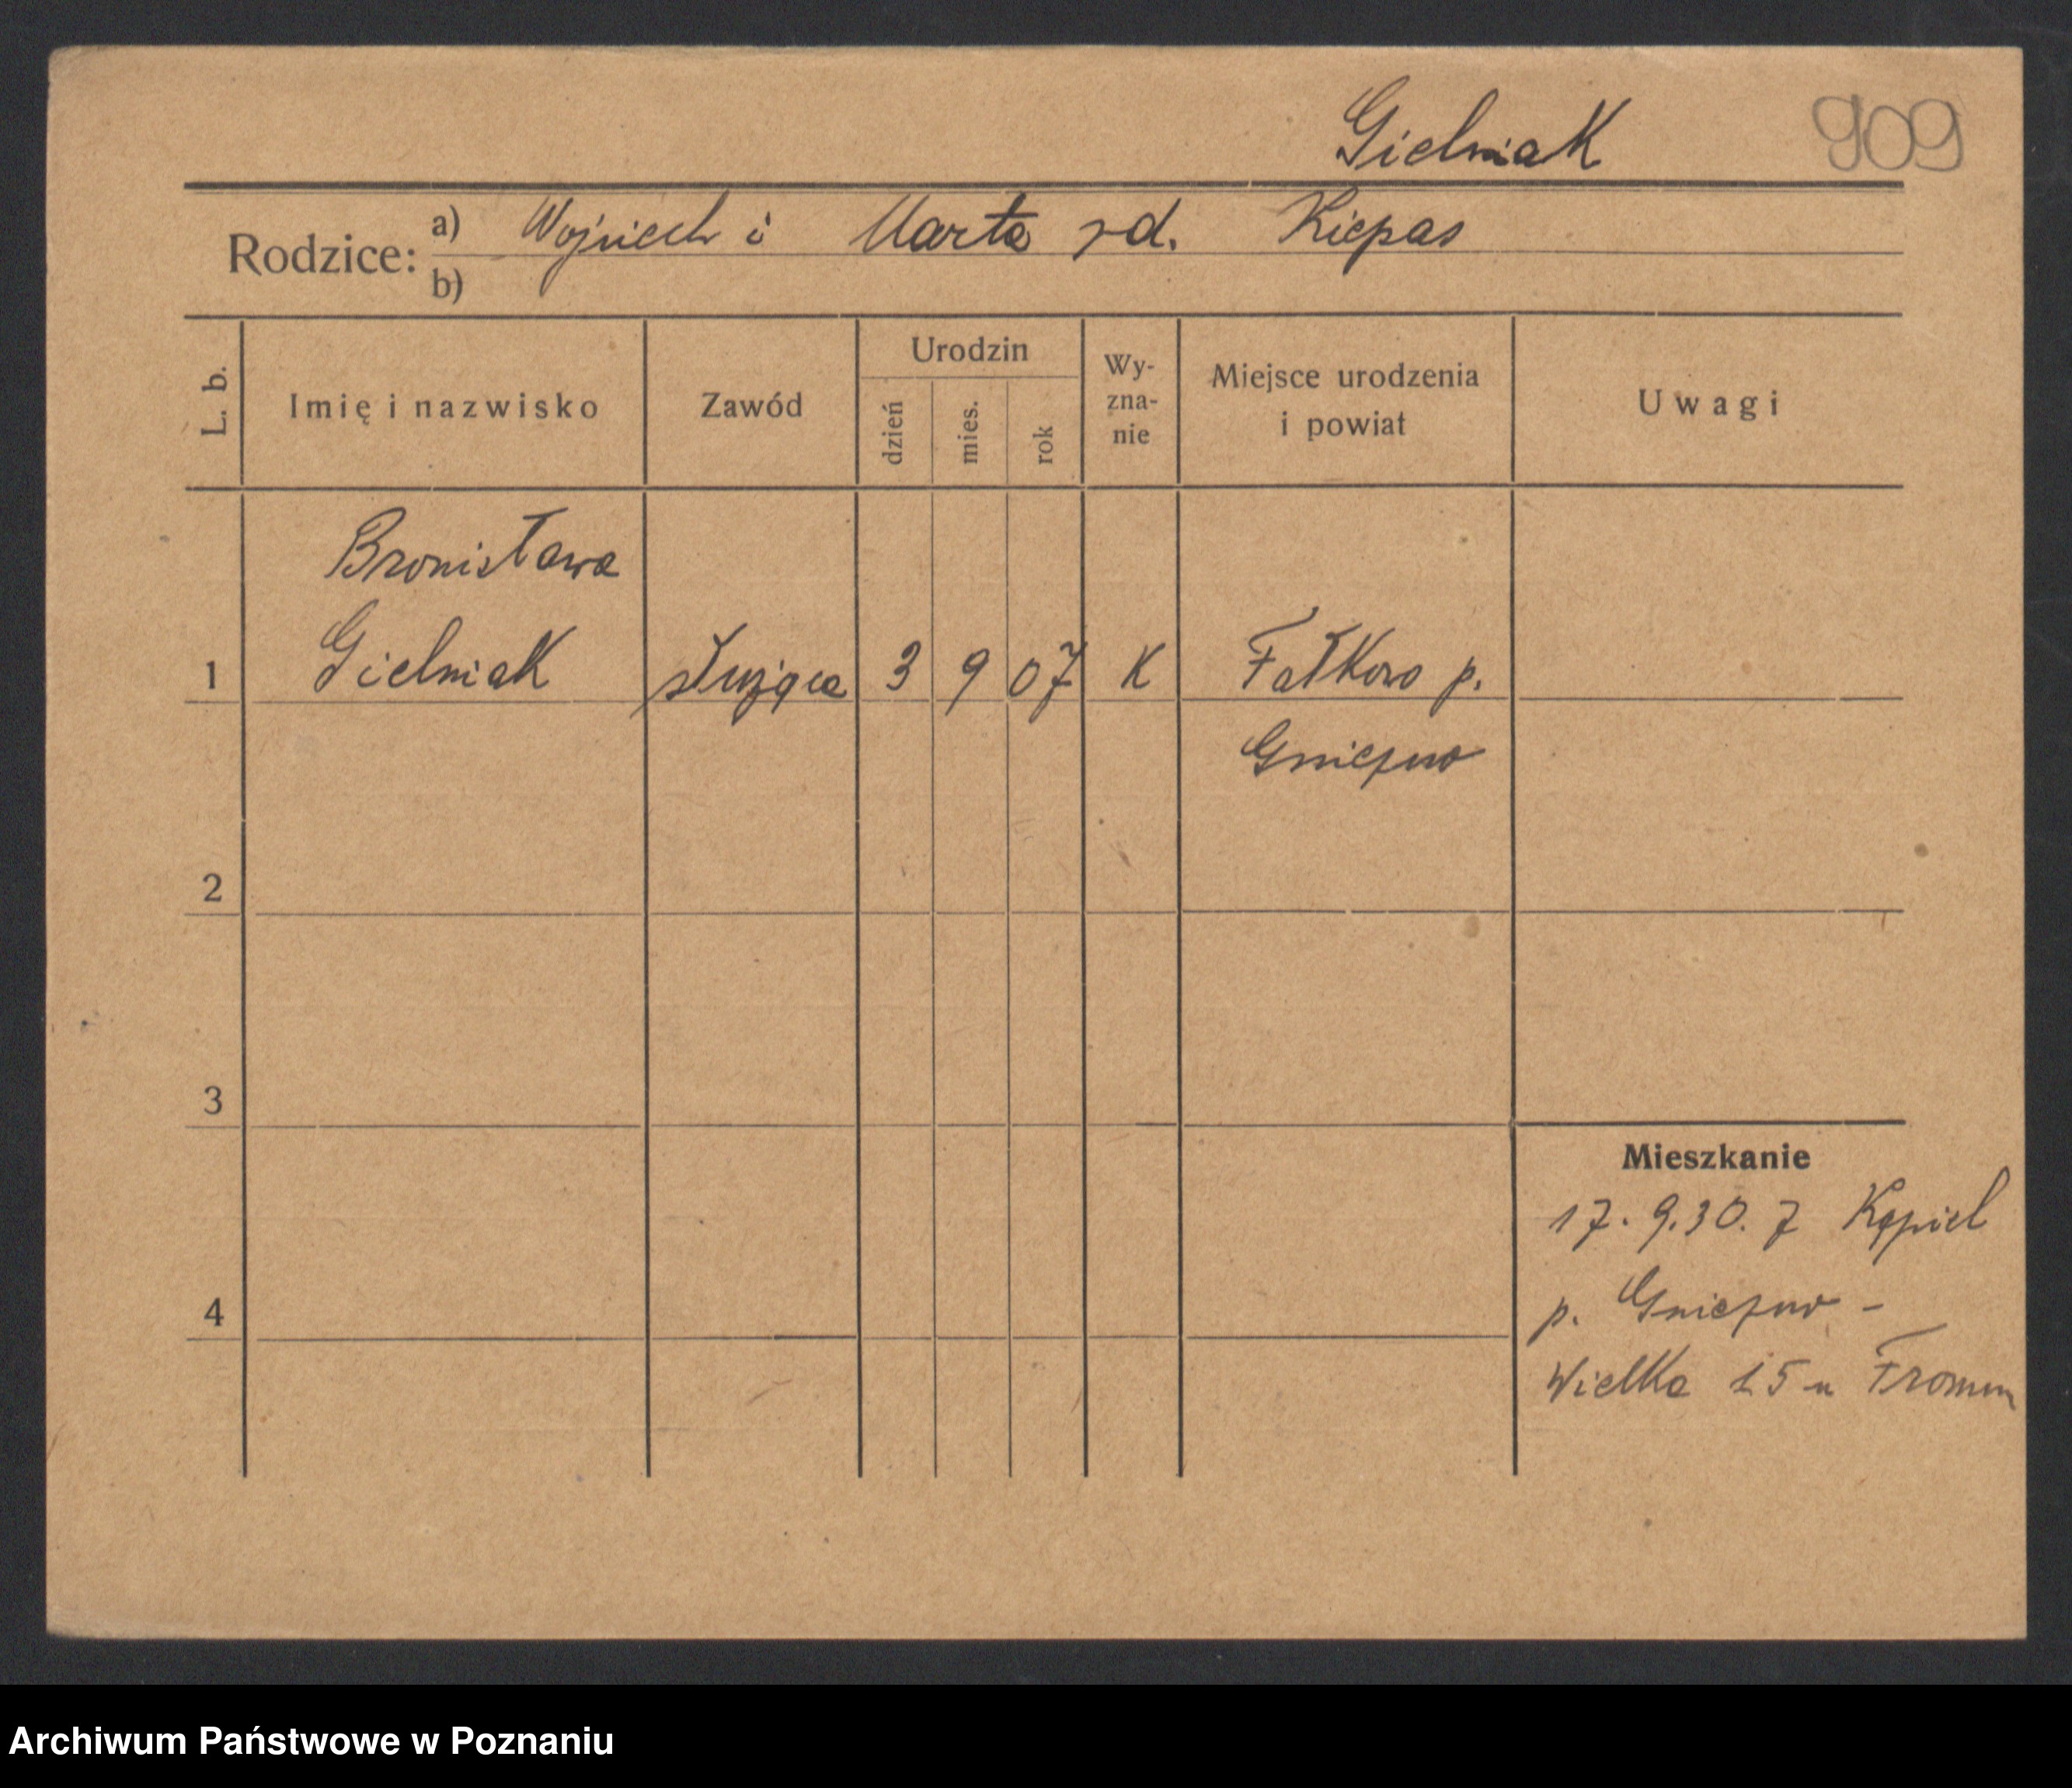 Gielniak 909
Rodzice: a) Wojciech i Marta rd. Kiepas
b)
L. b. Imię i nazwisko Zawód Urodzin dzień mies. rok Wy-zna-nie Miejsce urodzenia i powiat Uwagi
Bronisława
1 Gielniak służąca 3 9 07 K Fałkowo p.
Gniezno
2
3
Mieszkanie
17. 9.30. z Kąpiel
4 p. Gniezno -
Wielka 15 u Fromm
Archiwum Państwowe w Poznaniu